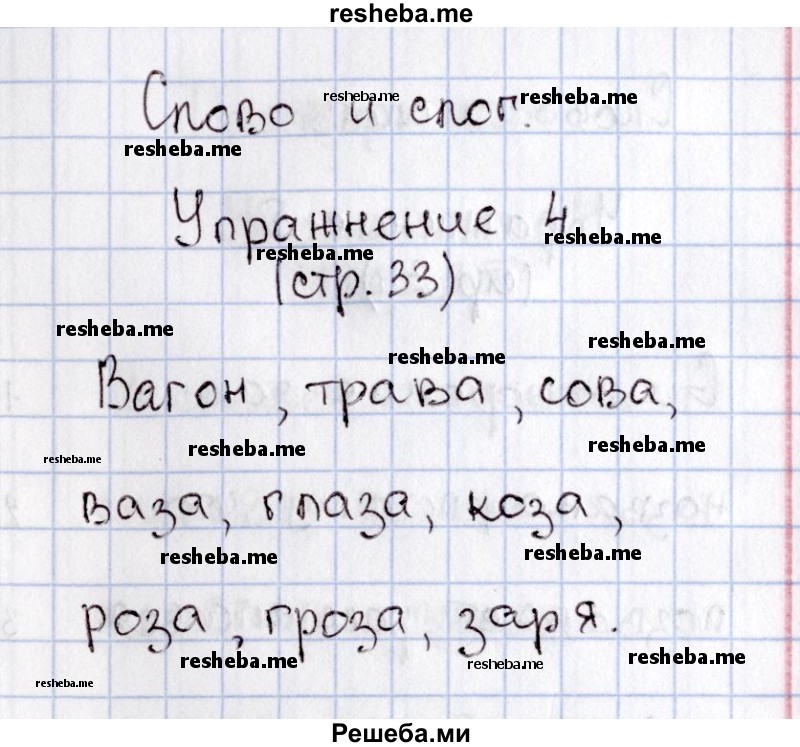 resheba.me
Слово и слог.
resheba.me resheba.me
resheba.me
Упражнение 4
resheba.me
resheba.me
(стр. 33)
resheba.me
resheba.me
resheba.me
Вагон, трава, сова,
resheba.me
resheba.me
resheba.me
ваза, глаза, коза,
resheba.me
resheba.me
роза, гроза, заря.
resheba.me
resheba.me
resheba.me
resheba.me
Решеба.ми